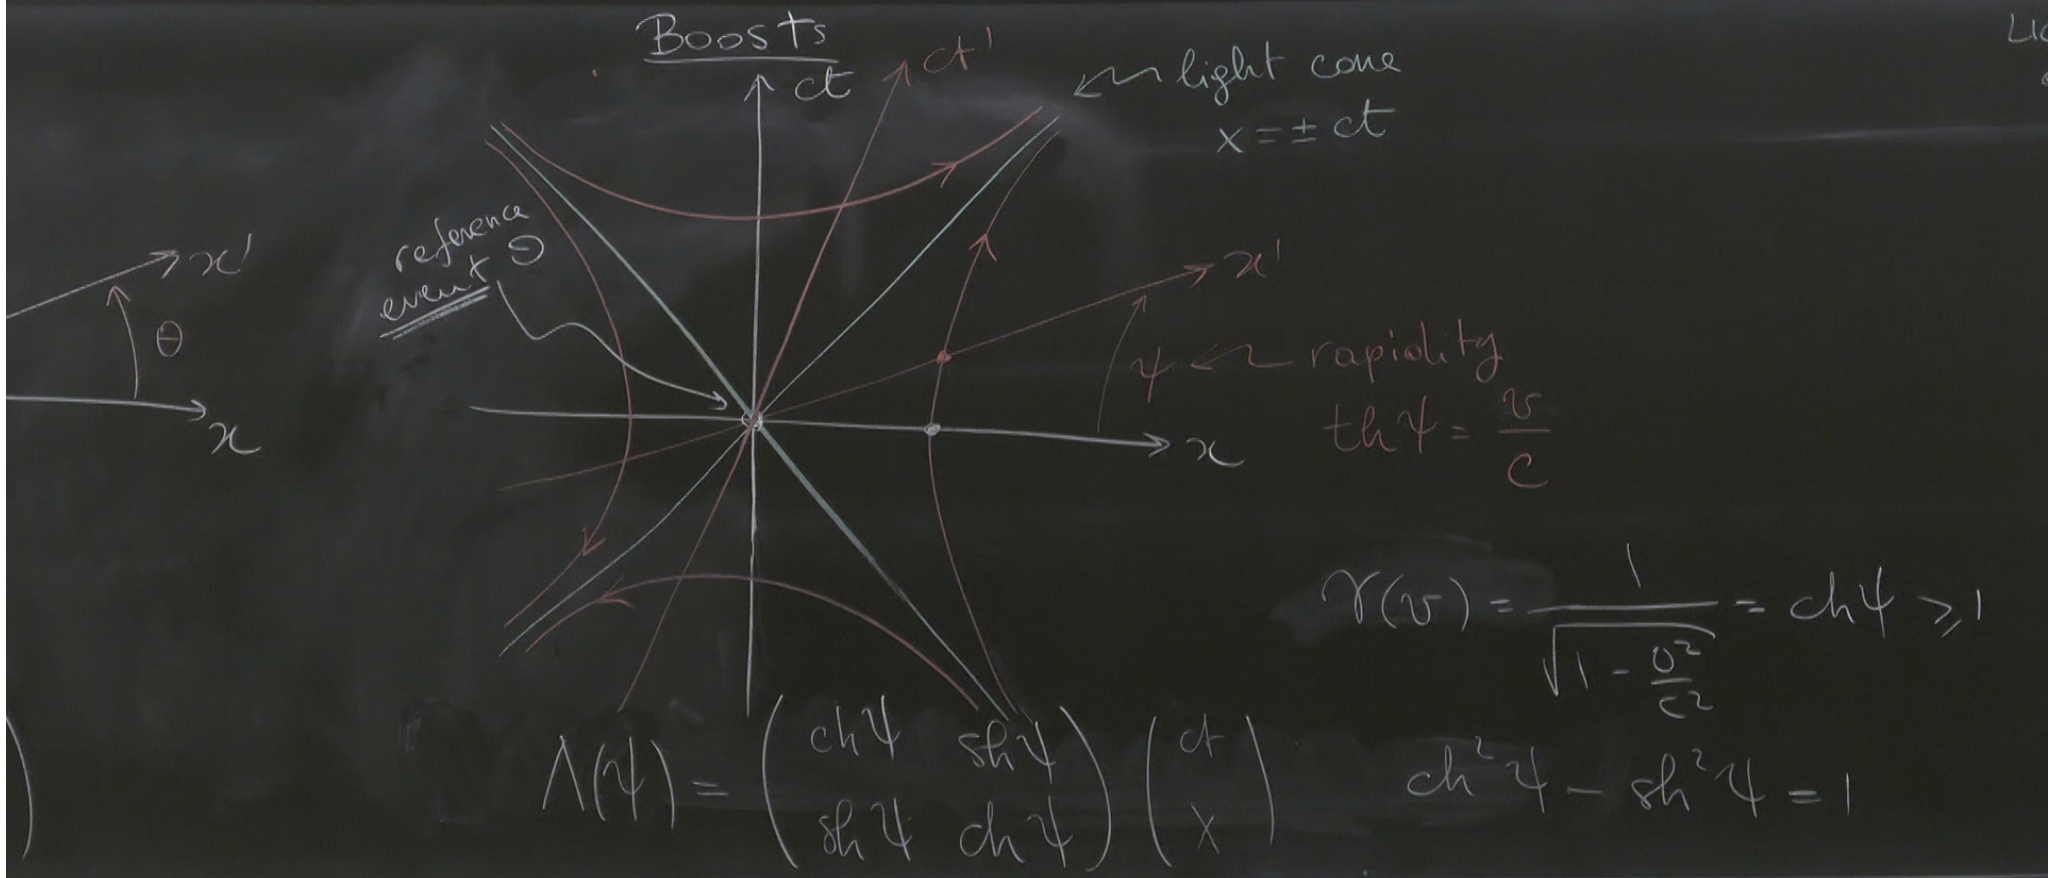 Boosts
ct
ct'
light cone
x = ± ct
reference
event O
x'
θ
x
x'
ψ
rapidity
th ψ = v/c
x
γ(v) = 1/√(1 - v²/c²) = ch ψ ⩾ 1
Λ(ψ) = ( ch ψ sh ψ ) ( ct )
( sh ψ ch ψ ) ( x )
ch² ψ - sh² ψ = 1